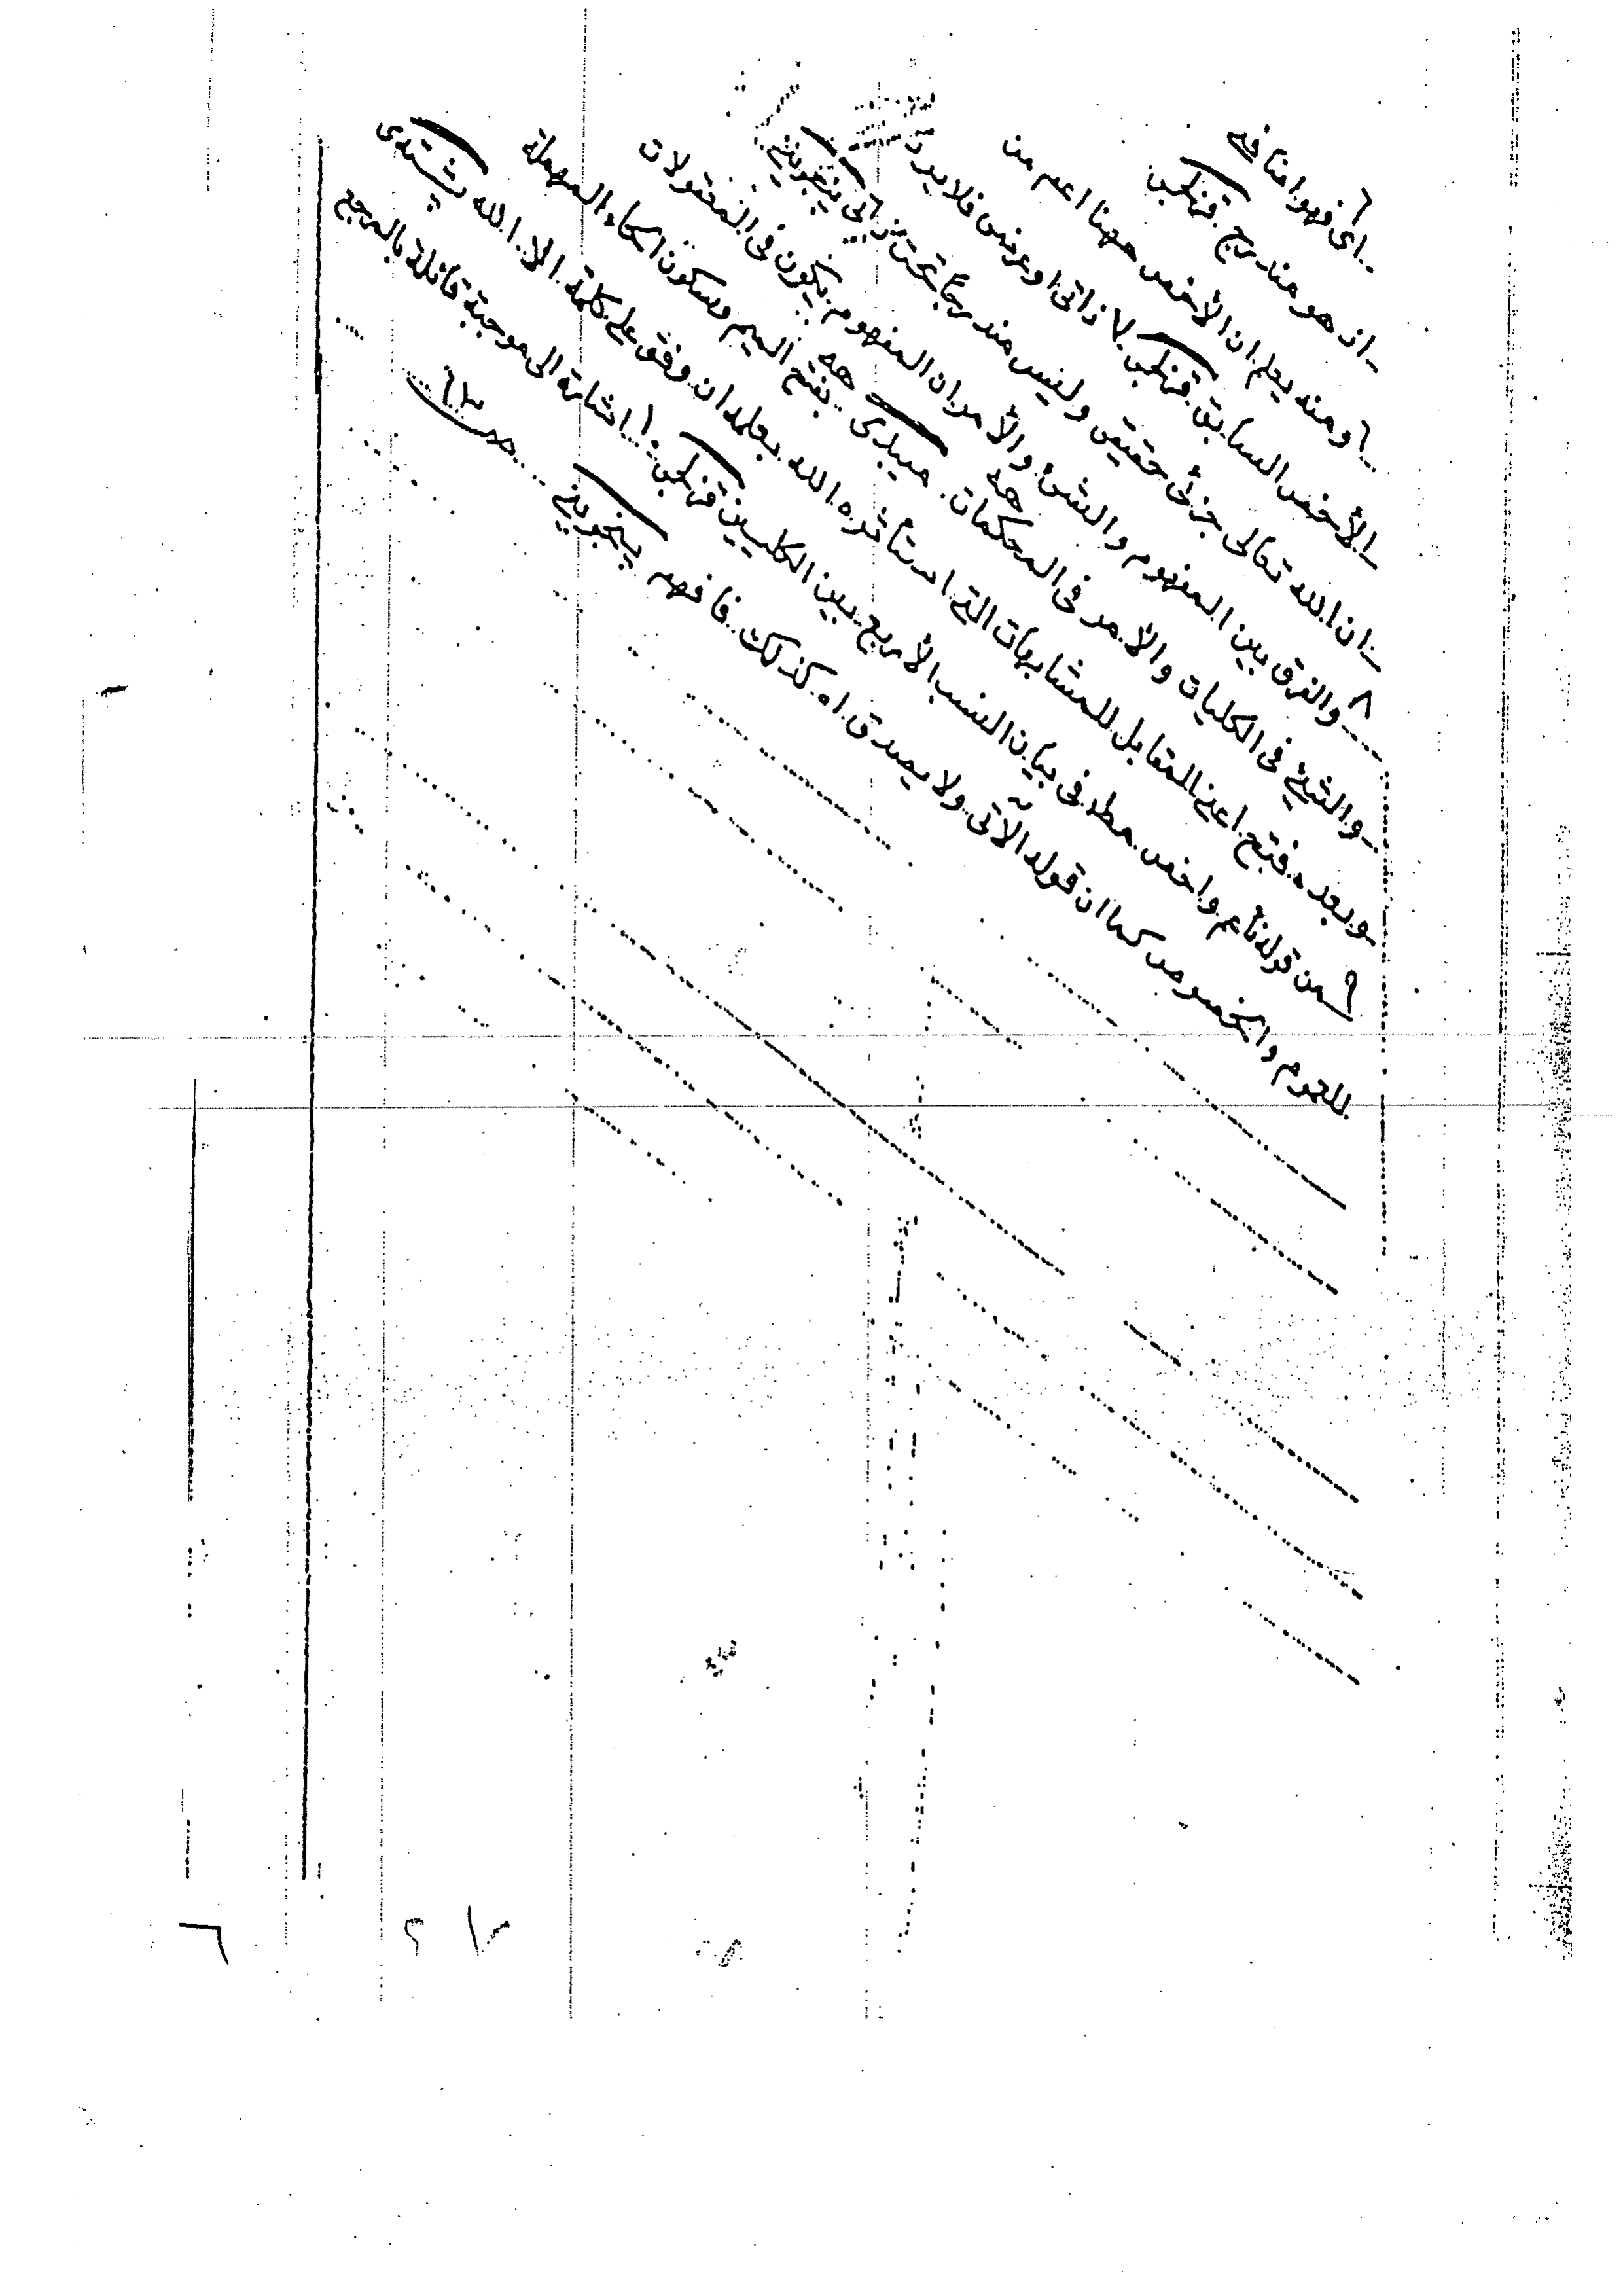 ٦ اى فهو اضافى
اذ هو مندرج قزلجى
٦ ومنه يعلم ان الأخص ههنا اعم من
الأخص السابق قزلجى ٧ ذاتى او عرضى فلا يرد
ان الله تعالى جزئى حقيقى وليس مندرجا تحت ذاتى ينجوينى
٨ والفرق بين المفهوم والشئ والأمر ان المفهوم يكون فى المعقولات
والشئ فى الكليات والأمر فى المحكمات. ميبدى بفتح الميم وسكون الحاء المهملة
وبعده فتح اعنى المقابل للمتشابهات التى استأثره الله بعلمه ان وقف على كلمة الا الله پشتدرى
٩ من قولنا عم واخص مطلد فى بيان النسب الأربع بين الكليين قزلجى ١٠ اشارة الى موجبة قائلة بالمرجع
للعموم والخصوص كما ان قوله الآتى ولا يصدق اه كذلك فافهم ينجوينى